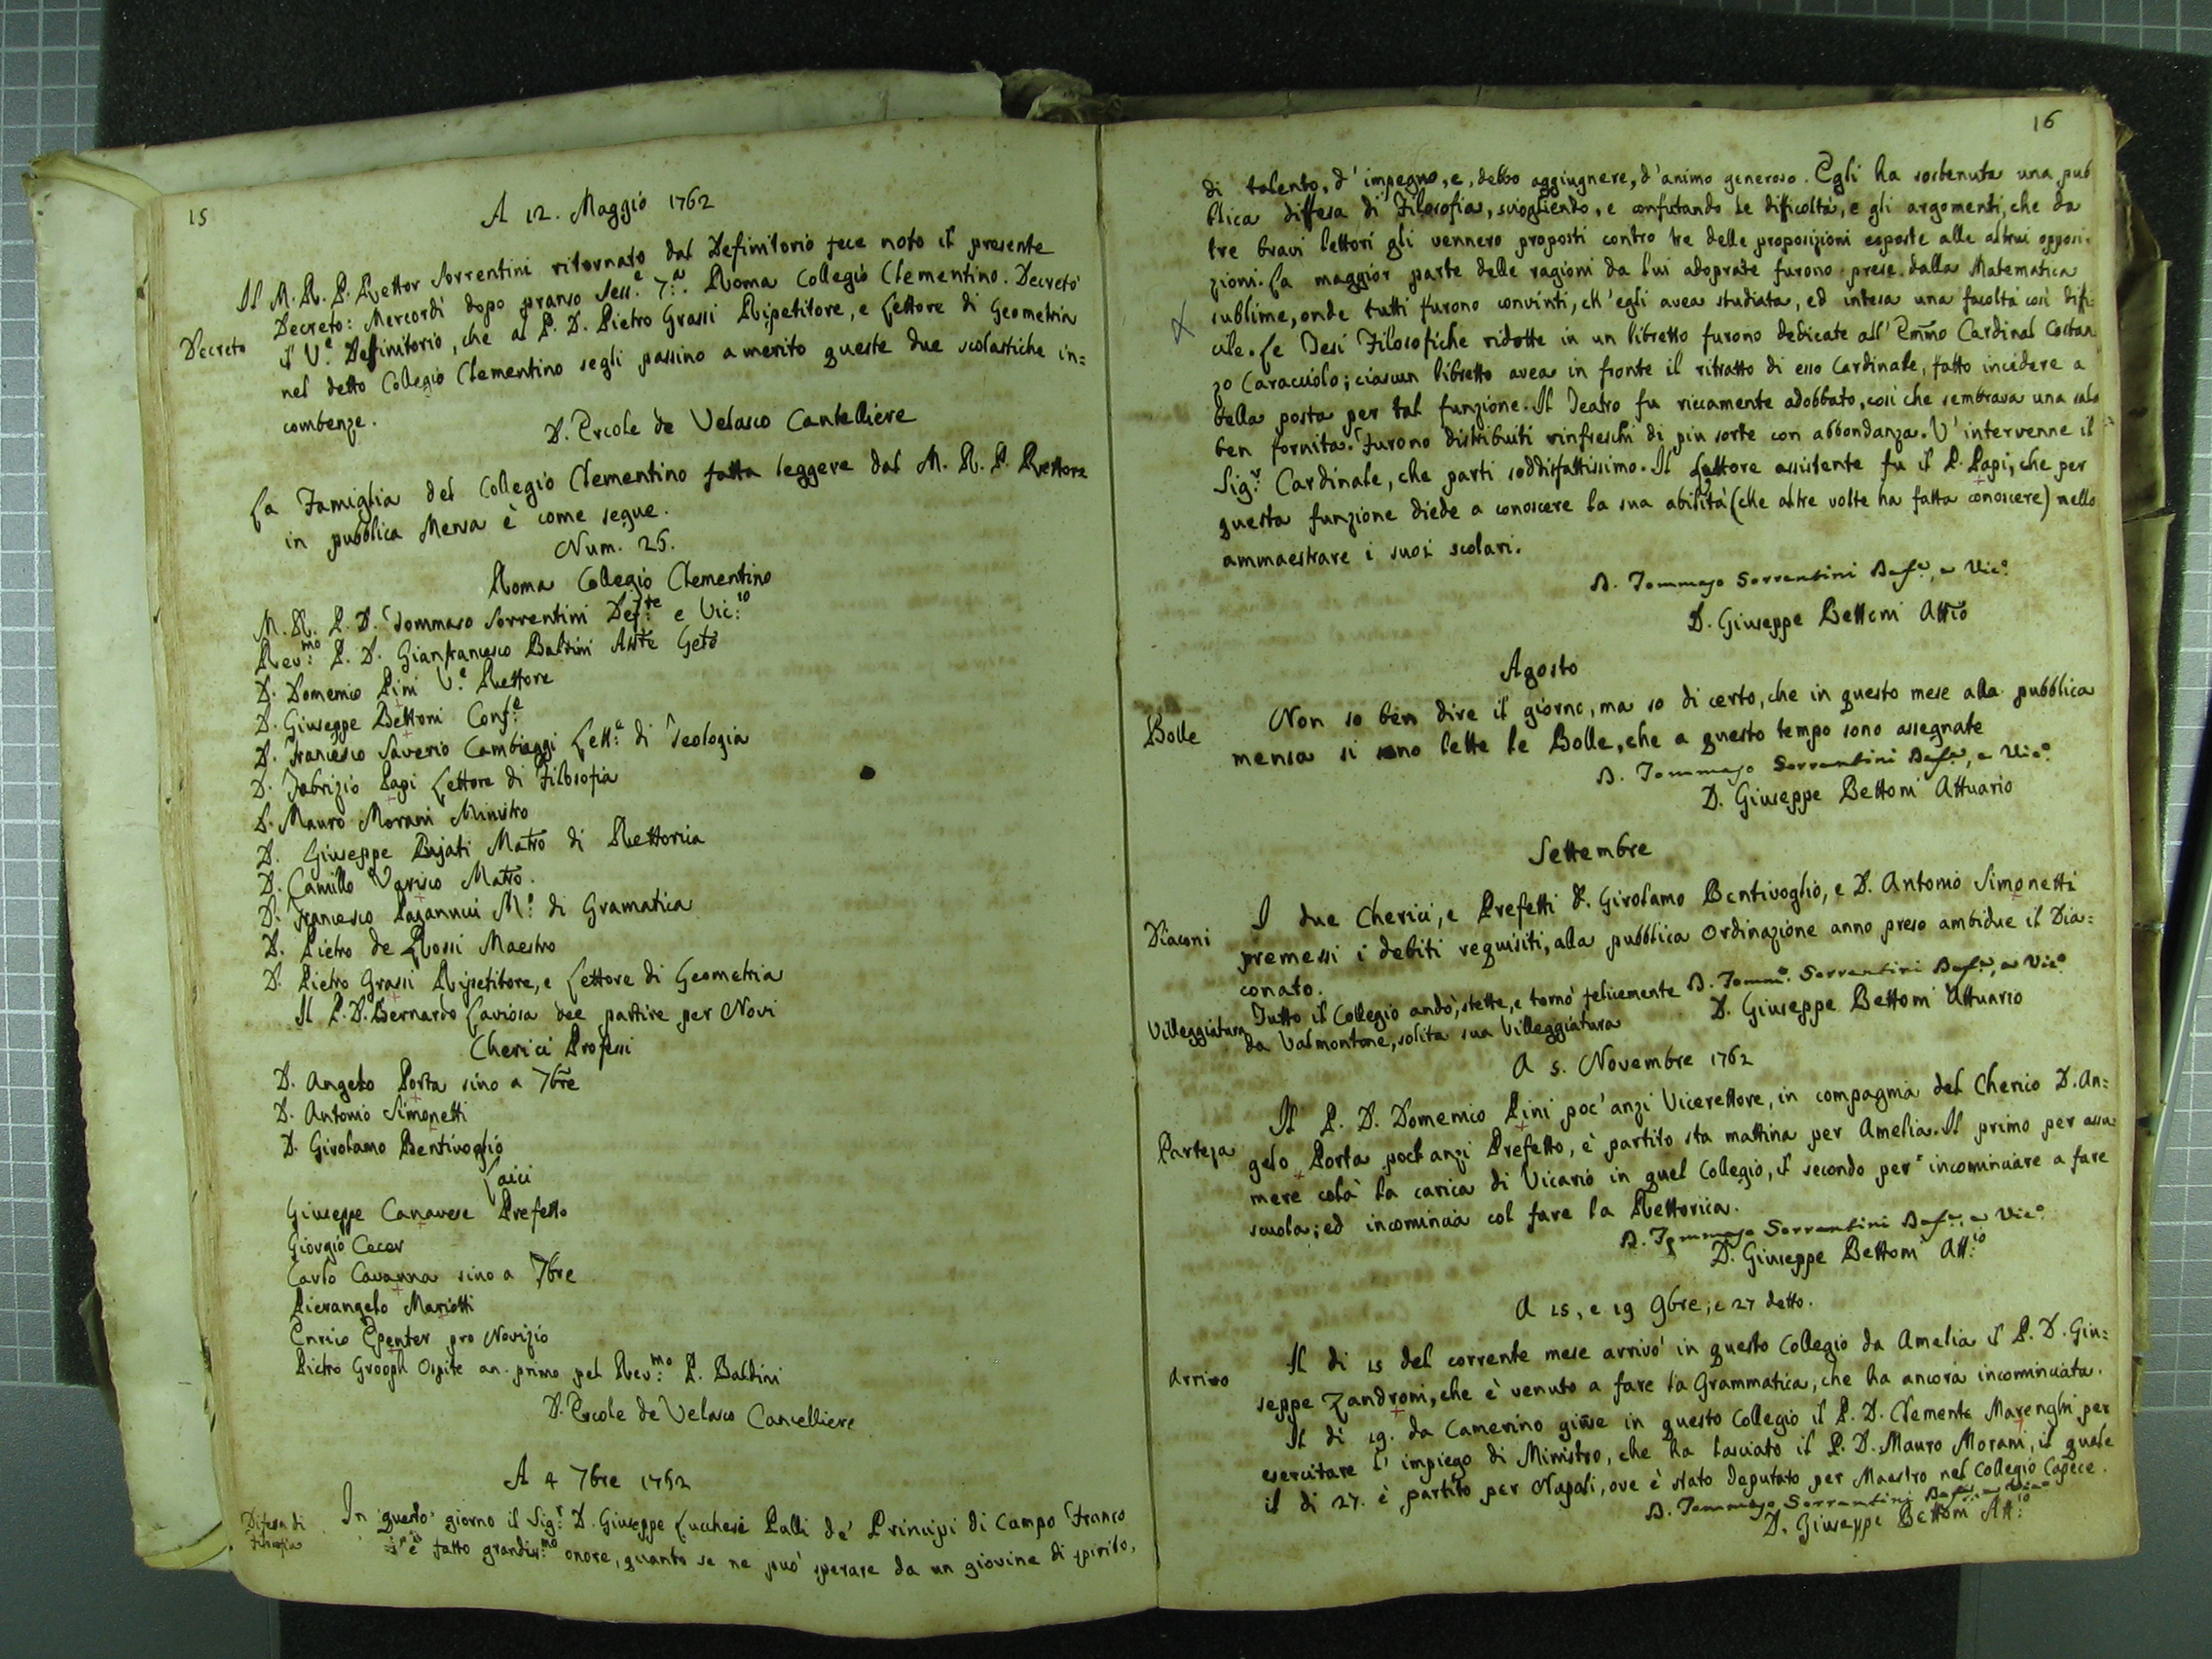 15
A 12. Maggio 1762
Il M. R. P. Rettor Sorrentini ritornato dal Definitorio fece noto il presente
Decreto: Mercordì dopo pranso Sess.e 7.a Roma Collegio Clementino. Decretò
Decreto
il V.e Definitorio, che al P. D. Pietro Grassi Ripetitore, e Lettore di Geometria
nel detto Collegio Clementino segli passino a merito queste due scolastiche in=
combenze.
D. Ercole de Velasco Cancelliere
La Famiglia del Collegio Clementino fatta leggere dal M. R. P. Rettore
in pubblica Mensa è come segue.
Num. 26.
Roma Collegio Clementino
M. R. P. D. Tommaso Sorrentini Def:re e Vic:io
Rev:mo P. D. Gianfrancesco Baldini Asste Gele
D. Domenico Pini V.e Rettore
D. Giuseppe Bettoni Conf:e
D. Francesco Saverio Cambiaggi Lett:e di Teologia
D. Fabrizio Papi Lettore di Filosofia
D. Mauro Morani Ministro
D. Giuseppe Pujati Matro di Rettorica
D. Camillo Varisco Matro.
D. Francesco Paganucci M:o di Gramatica
D. Pietro de Rossi Maestro
D. Pietro Grassi Ripetitore, e Lettore di Geometria
Il P. D. Bernardo Laviosa dee partire per Novi
Cherici Professi
D. Angelo Porta sino a 7bre
D. Antonio Simonetti
D. Girolamo Bentivoglio
Laici
Giuseppe Canavese Prefetto
Giorgio Cecer
Carlo Cavanna sino a 7bre
Pierangelo Mariotti
Enrico Epenter pro Novizio
Pietro Grooph Ospite an. primo pel Rev:mo P. Baldini
D. Ercole de Velasco Cancelliere
A 4 7bre 1762
Difesa di
Filosofia
In questo giorno il Sig:r D. Giuseppe Lucchesi Palli de' Principi di Campo Franco
s'è fatto grandiss:mo onore, quanto se ne può sperare da un giovine di spirito,
16
di talento, d'impegno, e, debbo aggiugnere, d'animo generoso. Egli ha sostenuta una pub
blica diffesa di Filosofia, sciogliendo, e confutando le difficoltà, e gli argomenti, che da
tre bravi lettori gli vennero proposti contro tre delle proposizioni esposte alle altrui opposi=
zioni. La maggior parte delle ragioni da lui adoprate furono prese dalla Matematica
sublime, onde tutti furono convinti, ch'egli avea studiata, ed intesa una facoltà così difi=
cile. Le Tesi Filosofiche ridotte in un libretto furono dedicate all'Emmo Cardinal Costan
zo Caracciolo; ciascun libretto avea in fronte il ritratto di esso Cardinale, fatto incidere a
bella posta per tal funzione. Il Teatro fu riccamente adobbato, così che sembrava una sala
ben fornita. Furono distribuiti rinfreschi di più sorte con abbondanza. V'intervenne il
Sig:r Cardinale, che partì soddisfattissimo. Il Lettore assistente fu il P. Papi, che per
questa funzione diede a conoscere la sua abilità (che altre volte ha fatta conoscere) nello
ammaestrare i suoi scolari.
D. Tommaso Sorrentini Def.e, e Vic.o
D. Giuseppe Bettoni Attio
Agosto
Bolle
Non so ben dire il giorno, ma so di certo, che in questo mese alla pubblica
mensa si sono lette le Bolle, che a questo tempo sono assegnate
D. Tommaso Sorrentini Def.e, e Vic.o
D. Giuseppe Bettoni Attuario
Settembre
Diaconi
I due Cherici, e Prefetti D. Girolamo Bentivoglio, e D. Antonio Simonetti
premessi i debiti requisiti, alla pubblica Ordinazione anno preso ambidue il Dia=
conato.
D. Tommo. Sorrentini Def.e, e Vic.o
Villeggiatura
Tutto il Collegio andò, stette, e tornò felicemente
D. Giuseppe Bettoni Attuario
da Valmontone, solita sua Villeggiatura
A 5. Novembre 1762
Parteza
Il P. D. Domenico Pini poc'anzi Vicerettore, in compagnia del Cherico D. An=
gelo Porta poch anzi Prefetto, è partito sta mattina per Amelia. Il primo per assu
mere colà la carica di Vicario in quel Collegio, il secondo per incominciare a fare
scuola; ed incomincia col fare la Rettorica.
D. Tommaso Sorrentini Def.e, e Vic.o
D. Giuseppe Bettoni Att:io
A 15, e 19 9bre; e 27 detto.
Arrivo
Il dì 15 del corrente mese arrivò in questo Collegio da Amelia il P. D. Giu=
seppe Zandroni, che è venuto a fare la Grammatica, che ha ancora incominciata.
Il dì 19. da Camerino giunse in questo Collegio il P. D. Clemente Marenghi per
esercitare l'impiego di Ministro, che ha lasciato il P. D. Mauro Morani, il quale
il dì 27. è partito per Napoli, ove è stato deputato per Maestro nel Collegio Capece.
D. Tommaso Sorrentini Def.e, e Vic.o
D. Giuseppe Bettoni Att:io